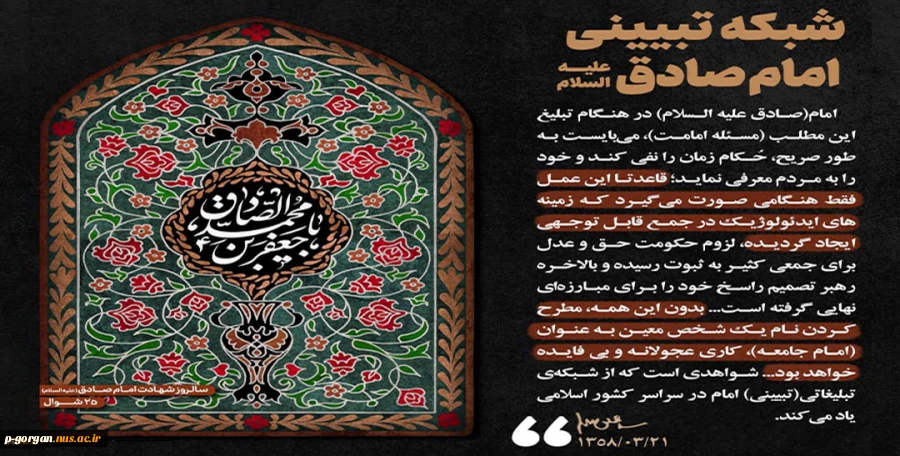 شبکه تبیینی
امام صادق علیه السلام
امام(صادق علیه السلام) در هنگام تبلیغ
این مطلب (مسئله امامت)، می‌بایست به
طور صریح، حُکام زمان را نفی کند و خود
را به مردم معرفی نماید؛ قاعدتا این عمل
فقط هنگامی صورت می‌گیرد که زمینه
های ایدئولوژیک در جمع قابل توجهی
ایجاد گردیده، لزوم حکومت حق و عدل
برای جمعی کثیر به ثبوت رسیده و بالاخره
رهبر تصمیم راسخ خود را برای مبارزه‌ای
نهایی گرفته است... بدون این همه، مطرح
کردن نام یک شخص معین به عنوان
(امام جامعه)، کاری عجولانه و بی فایده
خواهد بود... شواهدی است که از شبکه‌ی
تبلیغاتی(تبیینی) امام در سراسر کشور اسلامی
یاد می‌کند.
۱۳۵۸/۰۳/۲۱
یا جعفر بن محمد الصادق
سالروز شهادت امام صادق(علیه السلام)
۲۵ شوال
p-gorgan.nus.ac.ir